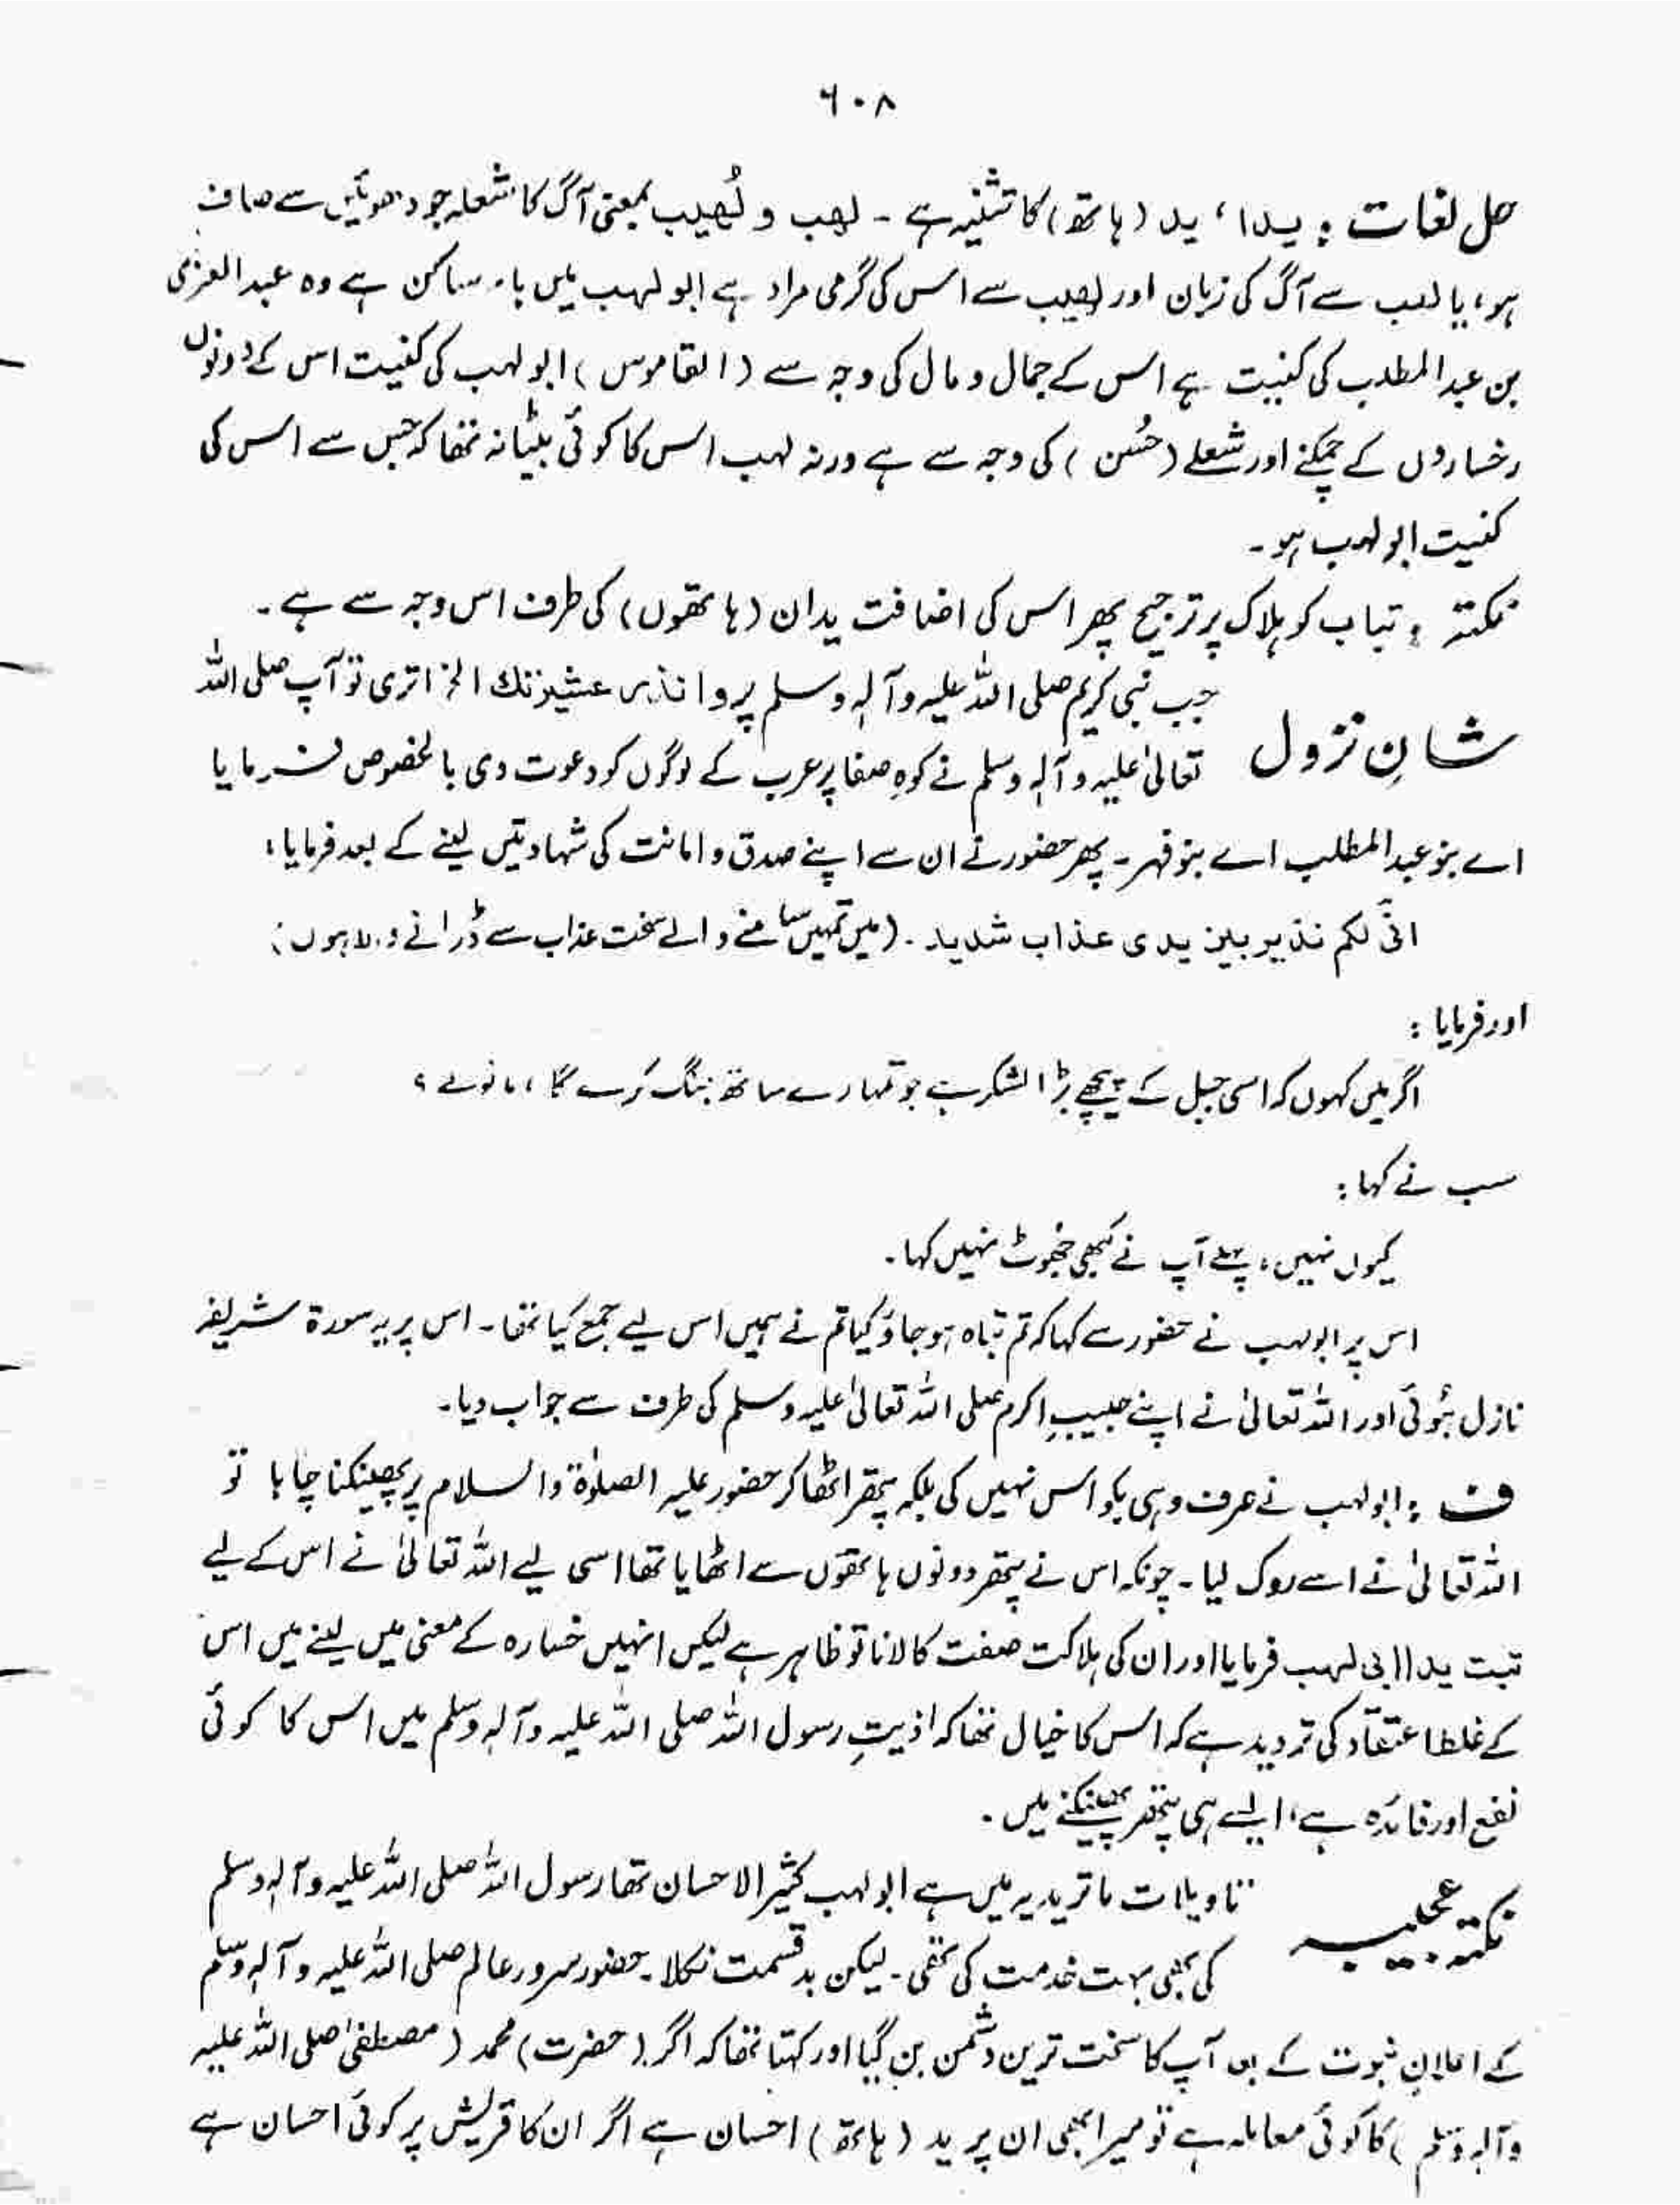 ۶۰۸
حل لغات : یدا ، ید ( ہاتھ ) کا تثنیہ ہے ۔ لھب و لُھیب بمعنی آگ کا شعلہ جو دھوئیں سے صاف
ہو ، یا لھب سے آگ کی زبان اور لھیب سے اس کی گرمی مراد ہے ابو لہب میں ہاء ساکن ہے وہ عبد العزی
بن عبد المطلب کی کنیت ہے اس کے جمال و مال کی وجہ سے ( القاموس ) ابو لہب کی کنیت اس کے دونوں
رخساروں کے چمکنے اور شعلے ( حُسن ) کی وجہ سے ہے ورنہ لہب اس کا کوئی بیٹا نہ تھا کہ جس سے اس کی
کنیت ابو لہب ہو ۔
نکتہ : تباب کو ہلاک پر ترجیح پھر اس کی اضافت یدان ( ہاتھوں ) کی طرف اس وجہ سے ہے ۔
شانِ نزول جب نبی کریم صلی اللہ علیہ وآلہ وسلم پر وانذر عشیرتك الخ اتری تو آپ صلی اللہ
تعالیٰ علیہ وآلہ وسلم نے کوہِ صفا پر عرب کے لوگوں کو دعوت دی بالخصوص فرمایا
اے بنو عبد المطلب اے بنو فہر ۔ پھر حضور نے ان سے اپنے صدق و امانت کی شہادتیں لینے کے بعد فرمایا :
انّی لکم نذیر بین یدی عذاب شدید ۔ ( میں تمہیں سامنے والے سخت عذاب سے ڈرانے والا ہوں )
اور فرمایا :
اگر میں کہوں کہ اسی جبل کے پیچھے بڑا لشکر ہے جو تمہارے ساتھ جنگ کرے گا ، مانو گے ؟
سب نے کہا :
کیوں نہیں ، پہلے آپ نے کبھی جھوٹ نہیں کہا ۔
اس پر ابولہب نے حضور سے کہا کہ تم تباہ ہو جاؤ کیا تم نے ہمیں اس لیے جمع کیا تھا ۔ اس پر یہ سورۃ شریفہ
نازل ہُوئی اور اللہ تعالیٰ نے اپنے حبیبِ اکرم صلی اللہ تعالیٰ علیہ وسلم کی طرف سے جواب دیا ۔
ف : ابولہب نے صرف وہی بکواس نہیں کی بلکہ پتھر اٹھا کر حضور علیہ الصلوٰۃ والسلام پر پھینکنا چاہا تو
اللہ تعالیٰ نے اسے روک لیا ۔ چونکہ اس نے پتھر دونوں ہاتھوں سے اٹھایا تھا اسی لیے اللہ تعالیٰ نے اس کے لیے
تبت یدا ابی لہب فرمایا اور ان کی ہلاکت صفت کا لانا تو ظاہر ہے لیکن انہیں خسارہ کے معنی میں لینے میں اس
کے غلط اعتقاد کی تردید ہے کہ اس کا خیال تھا کہ اذیتِ رسول اللہ صلی اللہ علیہ وآلہ وسلم میں اس کا کوئی
نفع اور فائدہ ہے ، ایسے ہی پتھر پھینکنے میں ۔
نکتہ عجیبہ تاویلات ماتریدیہ میں ہے ابو لہب کثیر الاحسان تھا رسول اللہ صلی اللہ علیہ وآلہ وسلم
کی بھی بہت خدمت کی تھی ۔ لیکن بدقسمت نکلا ۔ حضور سرور عالم صلی اللہ علیہ وآلہ وسلم
کے اعلانِ نبوت کے بعد آپ کا سخت ترین دشمن بن گیا اور کہتا تھا کہ اگر ( حضرت ) محمد ( مصطفیٰ صلی اللہ علیہ
وآلہ وسلم ) کا کوئی معاملہ ہے تو میرا بھی ان پر ید ( ہاتھ ) احسان ہے اگر ان کا قریش پر کوئی احسان ہے